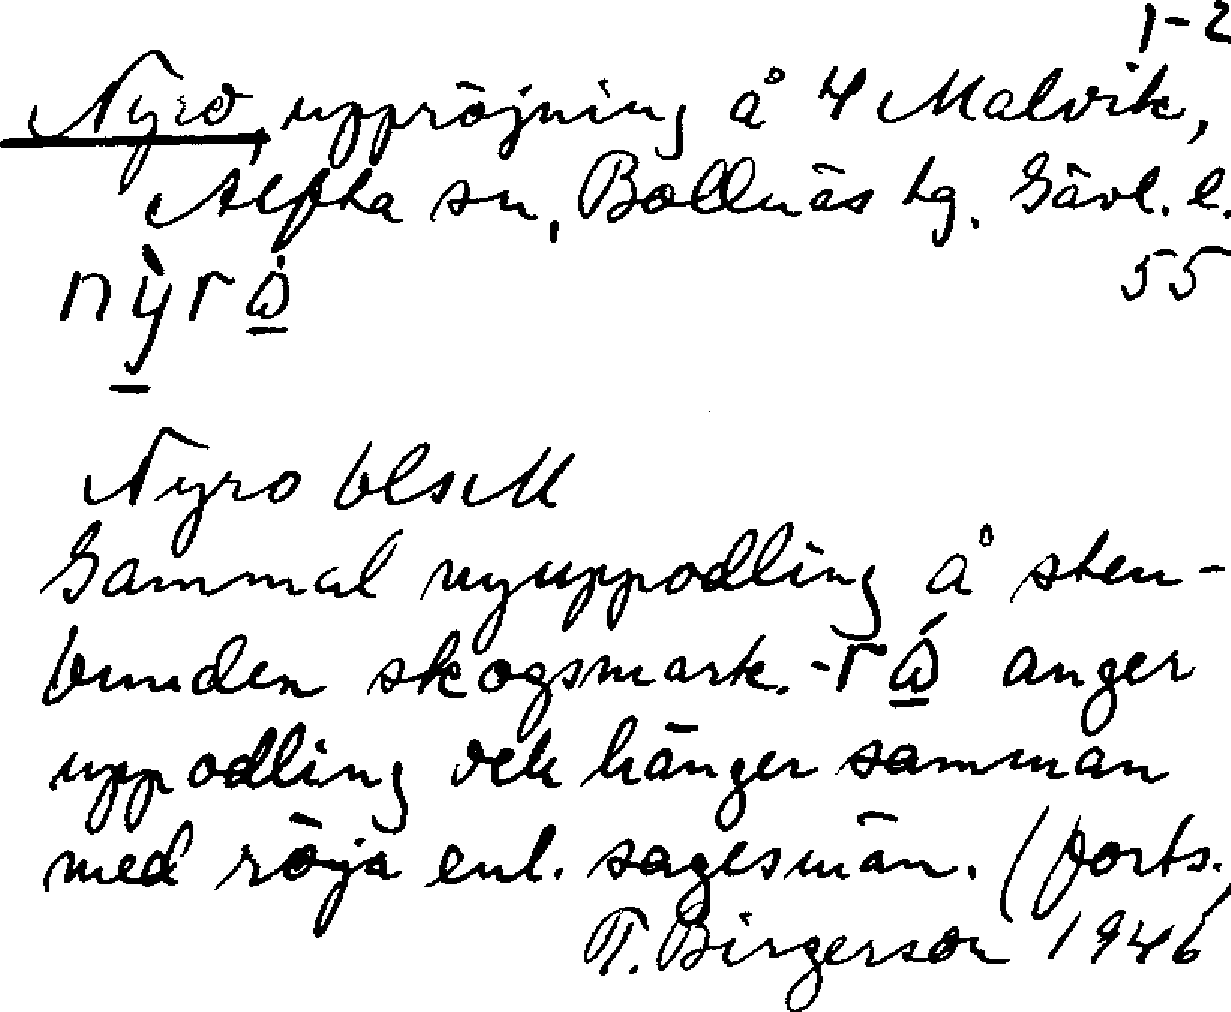 1-2
Nyrö, uppröjning å 4 Malvik,
Alfta sn, Bollnäs tg. Gävl. l.
55
Nyro blsM
Gammal nyuppodling å sten-
bunden skogsmark. -r anger
uppodling och hänger samman
med röja enl. sagesmän. (forts.)
T. Birgerson 1946